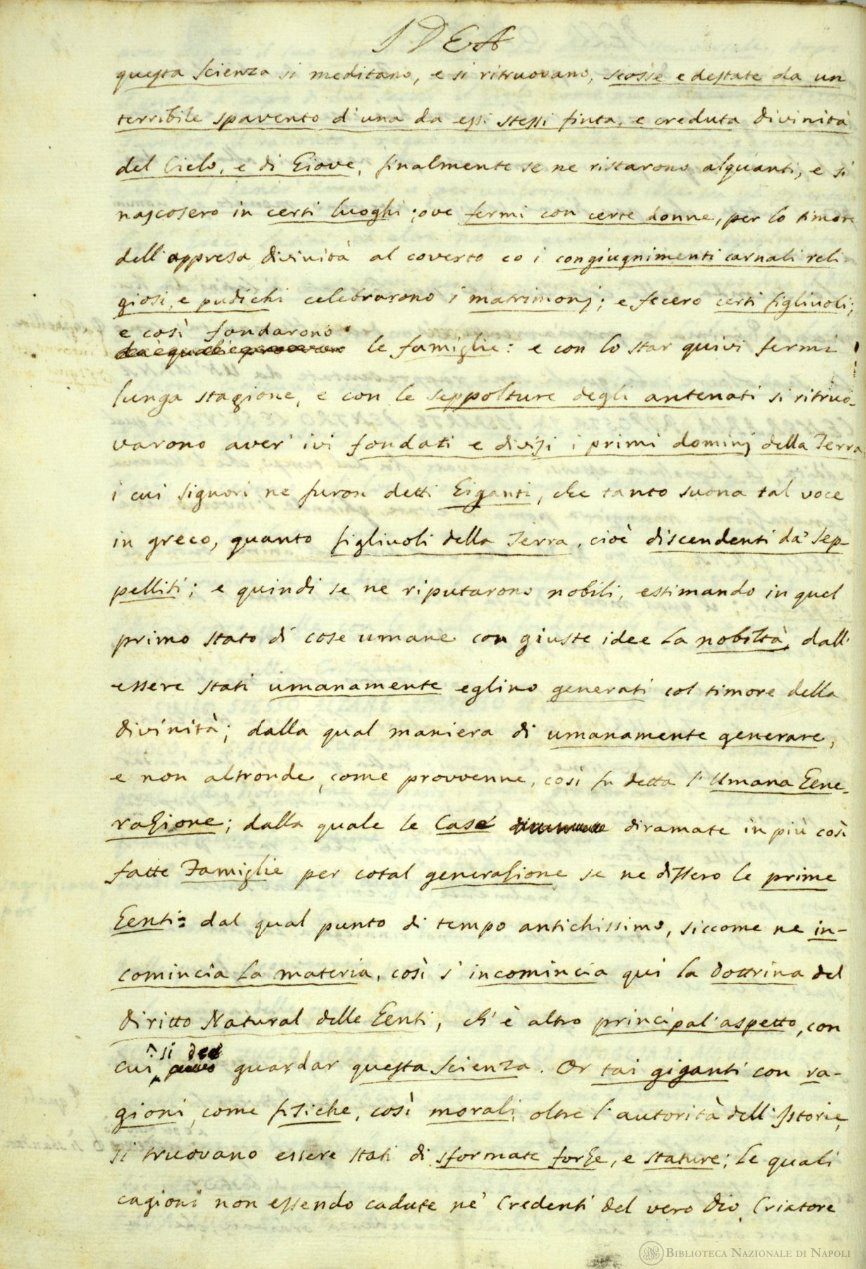 IDEA
questa Scienza si meditano, e si ritruovano, scosse e destate da un
terribile spavento d'una da essi stessi finta, e creduta Divinità
del Cielo, e di Giove, finalmente se ne ristarono alquanti, e si
nascosero in certi luoghi; ove fermi con certe donne, per lo timore
dell'appresa Divinità al coverto co i congiugnimenti carnali reli
giosi, e pudichi celebrarono i matrimonj; e fecero certi figliuoli;
e così fondarono
le famiglie: e con lo star quivi fermi
lunga stagione, e con le seppolture degli antenati si ritruo-
varono aver' ivi fondati e divisi i primi dominj della Terra
i cui Signori ne furon detti Giganti, che tanto suona tal voce
in greco, quanto figliuoli della Terra, cioè discendenti da' Sep-
pelliti; e quindi se ne riputarono nobili, estimando in quel
primo stato di cose umane con giuste idee la nobiltà, dall'
essere stati umanamente eglino generati col timore della
Divinità; dalla qual maniera di umanamente generare,
e non altronde, come provvenne, così fu detta l'Umana Gene-
razione; dalla quale le Case diramate in più così
fatte Famiglie per cotal generazione se ne dissero le prime
Genti: dal qual punto di tempo antichissimo, siccome ne in-
comincia la materia, così s'incomincia qui la Dottrina del
Diritto Natural delle Genti, ch'è altro principal'aspetto, con
si dee
cui guardar questa Scienza. Or tai giganti con ra-
gioni, come fisiche, così morali, oltre l'autorità dell'Istorie,
si truovano essere stati di sformate forze, e stature; le quali
cagioni non essendo cadute ne' Credenti del vero Dio, Criatore
BIBLIOTECA NAZIONALE DI NAPOLI